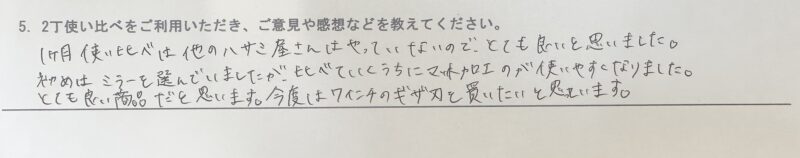 5. 2丁使い比べをご利用いただき、ご意見や感想などを教えてください。
1ヶ月使い比べは他のハサミ屋さんはやっていないので、とても良いと思いました。
初めはミラーを選んでいましたが、比べていくうちにマット加工のが使いやすくなりました。
とても良い商品だと思います。今度は7インチのギザ刃を買いたいと思います。